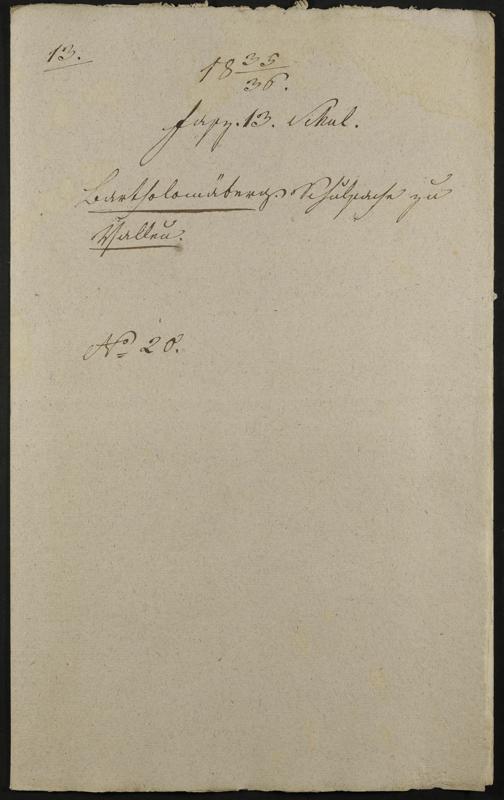 13.
18 35/36.
Fasz. 13. Schul.
Bartholomäberg. Schulsache zu
No 20.